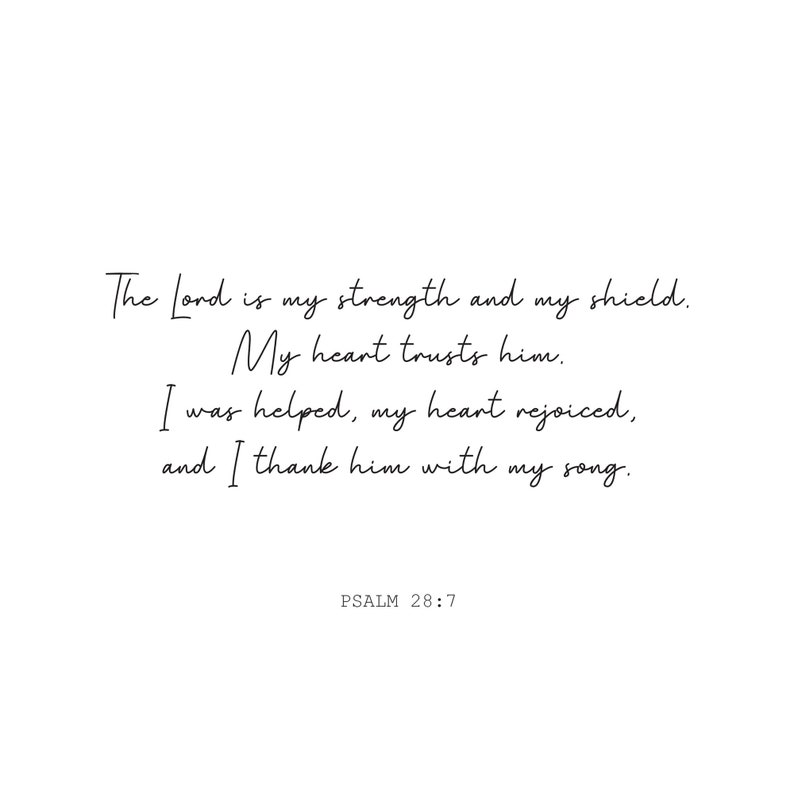 The Lord is my strength and my shield.
My heart trusts him.
I was helped, my heart rejoiced,
and I thank him with my song.
PSALM 28:7